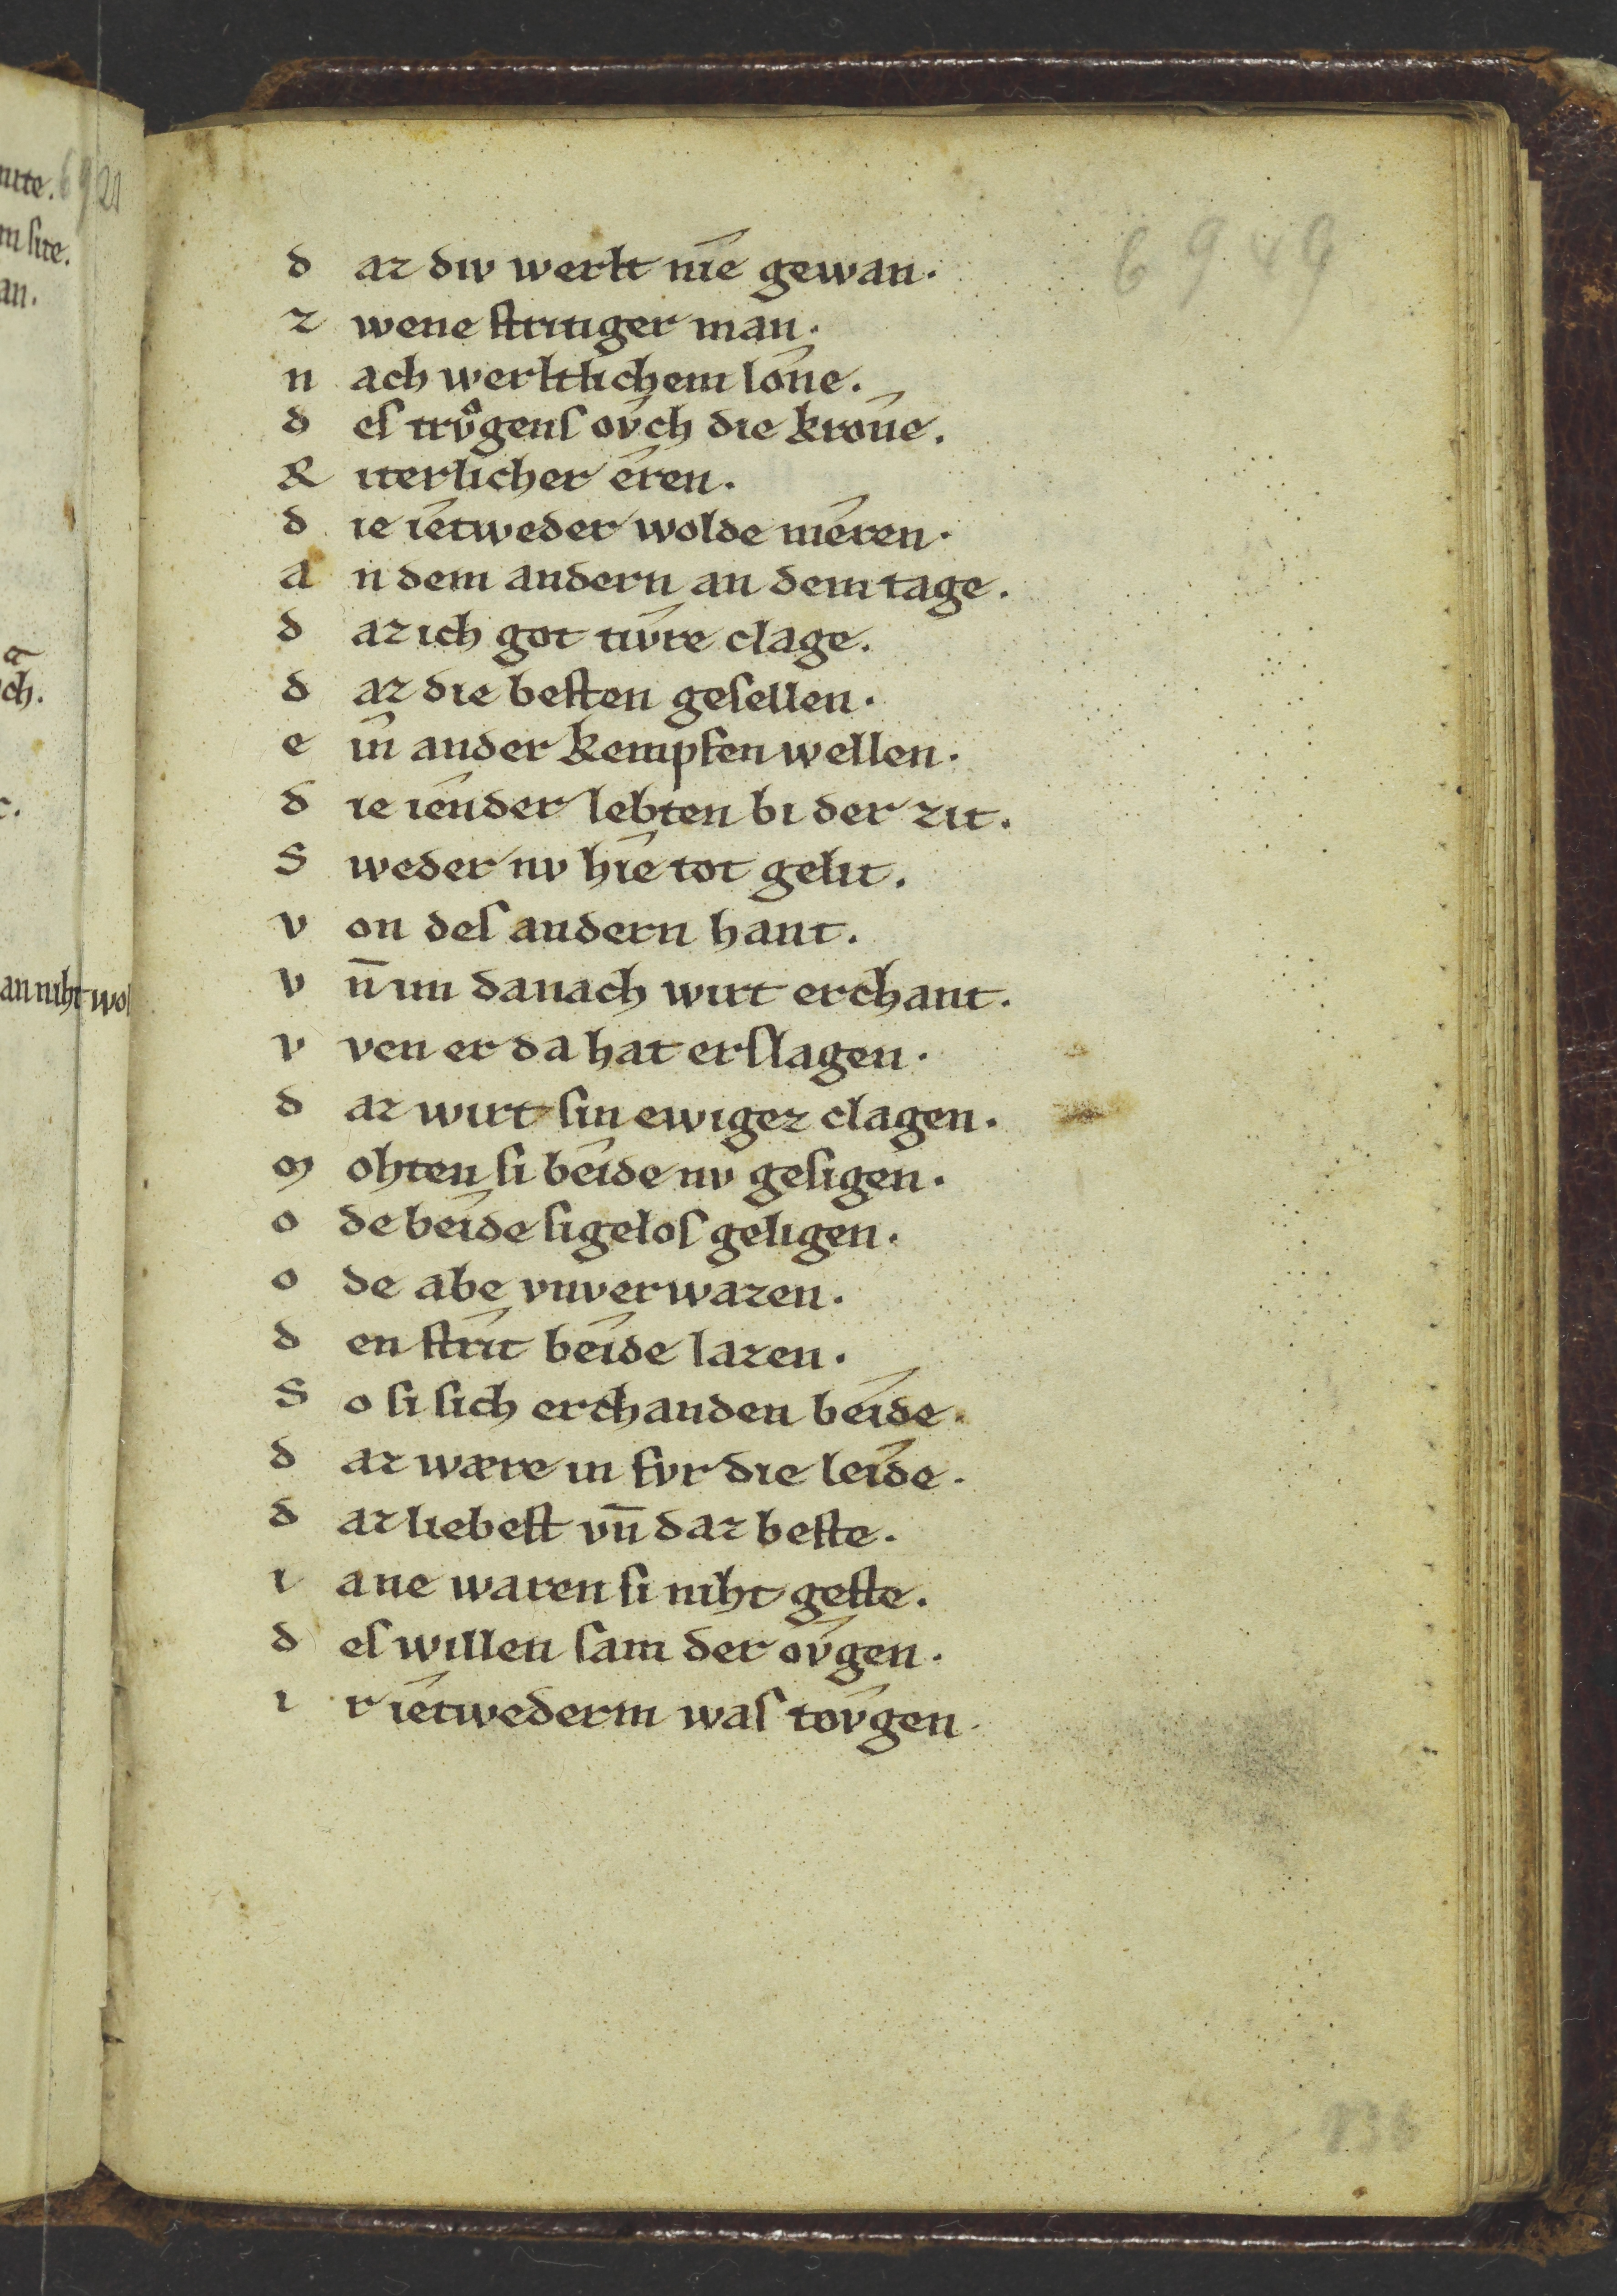 6949
d az div werlt nie gewan.
z wene stritiger man.
n ach werltlichem lône.
d es trvͦgens ovch die krône.
R iterlicher êren.
d ie ietweder wolde mêren.
a n dem andern an dem tage.
d az ich got tivre clage.
d az die besten gesellen.
e in ander kempfen wellen.
d ie iender lebten bi der zit.
S weder nv hie tot gelit.
v on des andern hant.
v n̄ im danach wirt erchant.
v ven er da hat erslagen.
d az wirt sin ewigez clagen.
m ohten si beide nv gesigen.
o de beide sigelos geligen.
o de abe vnverwazen.
d en strit beide lazen.
S o si sich erchanden beide.
d az wære in fvr die leide.
d az liebest vn̄ daz beste.
i ane waren si niht geste.
d es willen sam der ovgen.
i r ietwederm was tovgen.
136